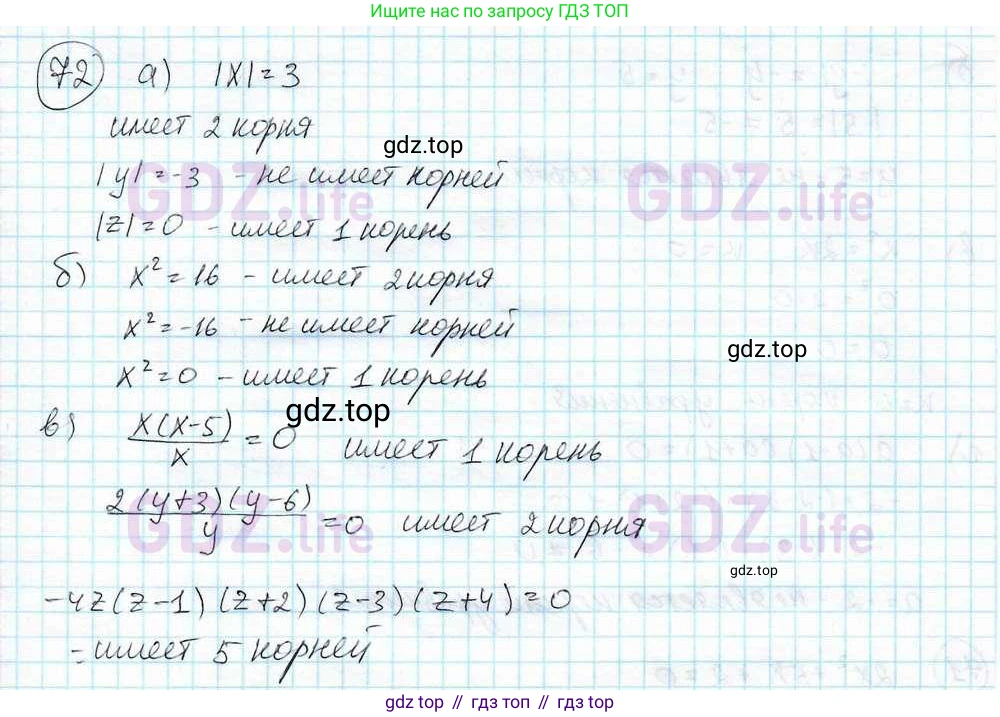 Ищите нас по запросу ГДЗ ТОП
72 а) |x| = 3
имеет 2 корня
gdz.top
|y| = -3 - не имеет корней
GDZ.life GDZ.life
|z| = 0 - имеет 1 корень
б) x² = 16 - имеет 2 корня
x² = -16 - не имеет корней
gdz.top
x² = 0 - имеет 1 корень
gdz.top
в) x(x-5)/x = 0 имеет 1 корень
2(y+3)(y-6)/y = 0 имеет 2 корня
GDZ.life GDZ.life
gdz.top
-4z(z-1)(z+2)(z-3)(z+4) = 0
- имеет 5 корней
gdz.top // гдз топ // gdz.top // гдз топ